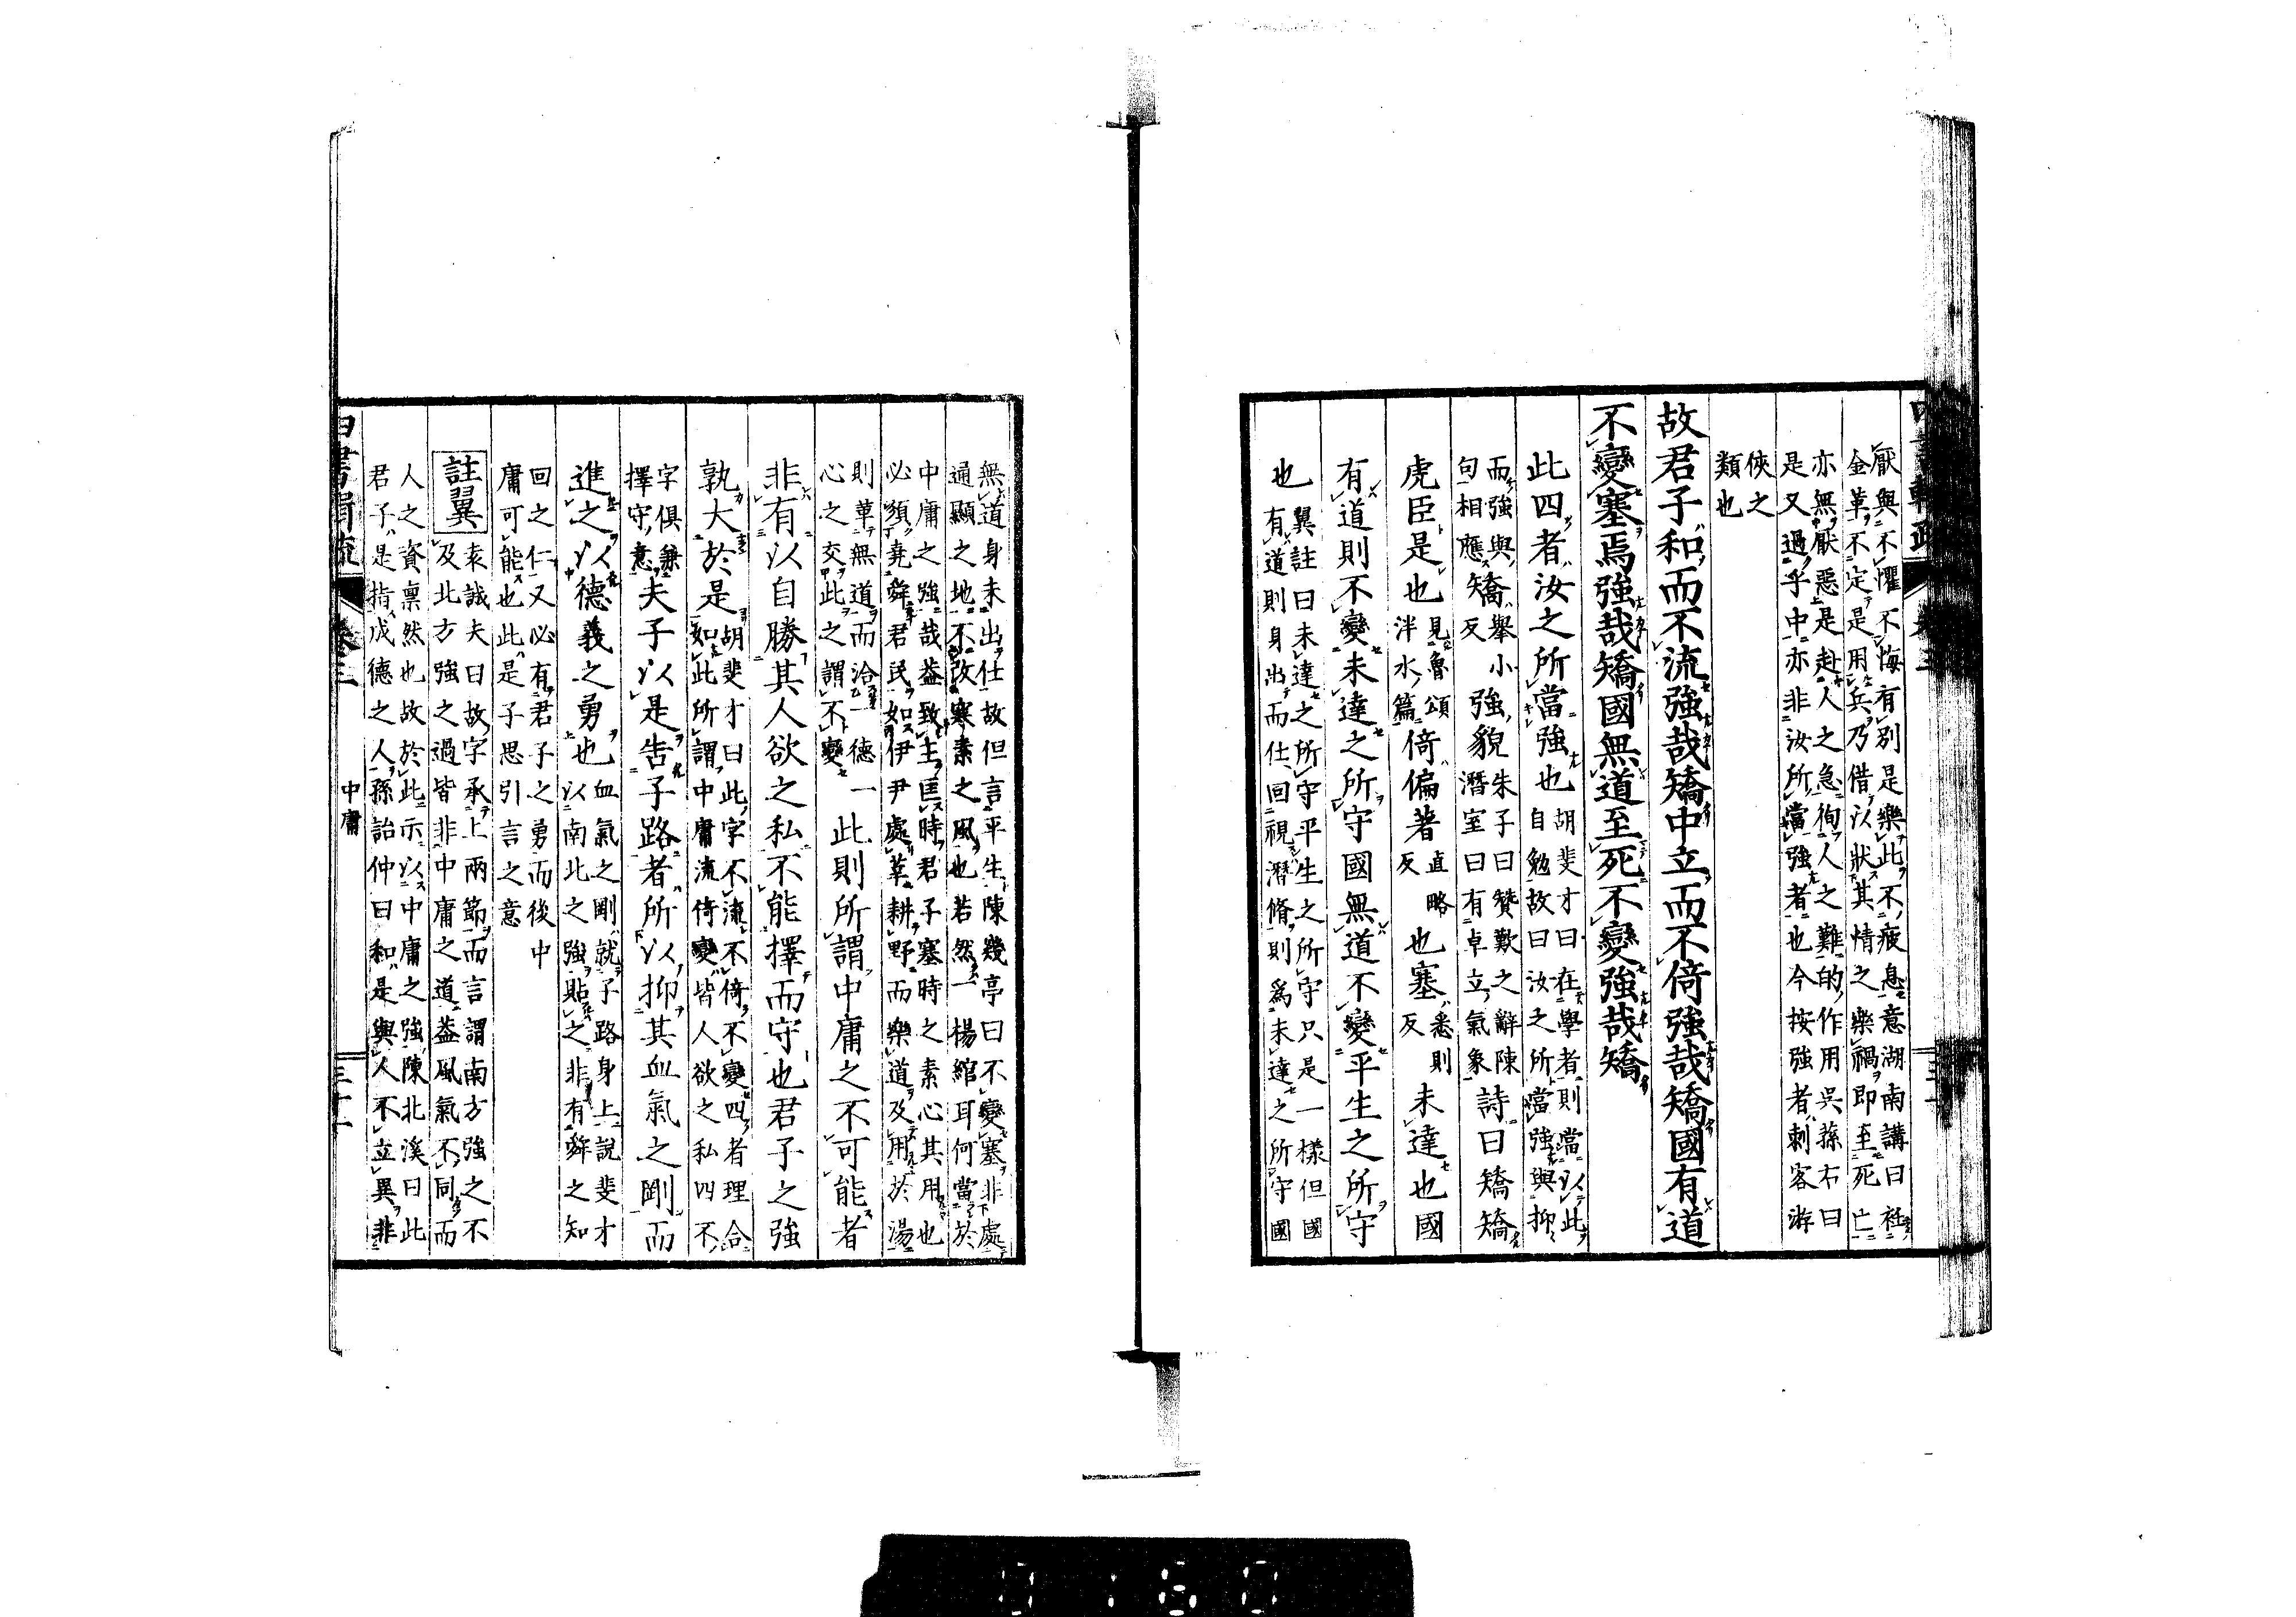 厭與不懼不悔有別是樂此不疲息意湖南講曰衽
金革不定是用兵乃借以狀其情之樂禍即至死亡
亦無厭惡是赴人之急徇人之難的作用吳蓀右曰
是又過乎中亦非汝所當強者也今按強者刺客游
俠之
類也
故君子和而不流強哉矯中立而不倚強哉矯國有道
不變塞焉強哉矯國無道至死不變強哉矯
此四者汝之所當強也
胡斐才曰在學者則當以此
自勉故曰汝之所當強與抑
而強與矯舉小
句相應矯反
強貌
朱子曰贊歎之辭陳
潛室曰有卓立氣象
詩曰矯矯
虎臣是也
見魯頌
泮水篇
倚偏著
直略
反
也塞
悉則
反
未達也國
有道則不變未達之所守國無道不變平生之所守
也
翼註曰未達之所守平生之所守只是一樣但國
有道則身出而仕回視潛脩則為未達之所守國
無道身未出仕故但言平生陳幾亭曰不變塞非處
通顯之地不改寒素之風也若然一楊綰耳何當於
中庸之強哉蓋致主匡時君子塞時之素心其用也
必須堯舜君民如伊尹處莘耕野而樂道及用於湯
則革無道而洽一德
心之交此之謂不變
一此則所謂中庸之不可能者
非有以自勝其人欲之私不能擇而守也君子之強
孰大於是
胡斐才曰此字不流不倚不變四者理合
如此所謂中庸流倚變皆人欲之私四不
字俱兼
擇守意
夫子以是告子路者所以抑其血氣之剛而
進之以德義之勇也
血氣之剛就子路身上說斐才
以南北之強貼之非有舜之知
回之仁又必有君子之勇而後中
庸可能也此是子思引言之意
註翼
袁誠夫曰故字承上兩節而言謂南方強之不
及北方強之過皆非中庸之道蓋風氣不同而
人之資稟然也故於此示以中庸之強陳北溪曰此
君子是指成德之人孫詒仲曰和是與人不立異非
四書輯疏
卷三
中庸
三十一